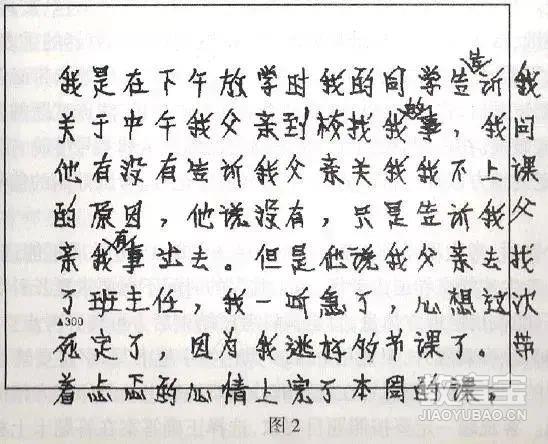 我是在下午放学时我的同学告诉我
关于中午我父亲到校找我的事，我问
他有没有告诉我父亲关我我不上课
的原因，他说没有，只是告诉我父
亲我有事出去。但是他说我父亲去找
了班主任，我一听急了，心想这次
▲300
死定了，因为我逃好的节课了。带
着忐忑的心情上完了本周的课，
图2
教育宝
JIAOYUBAO.CN